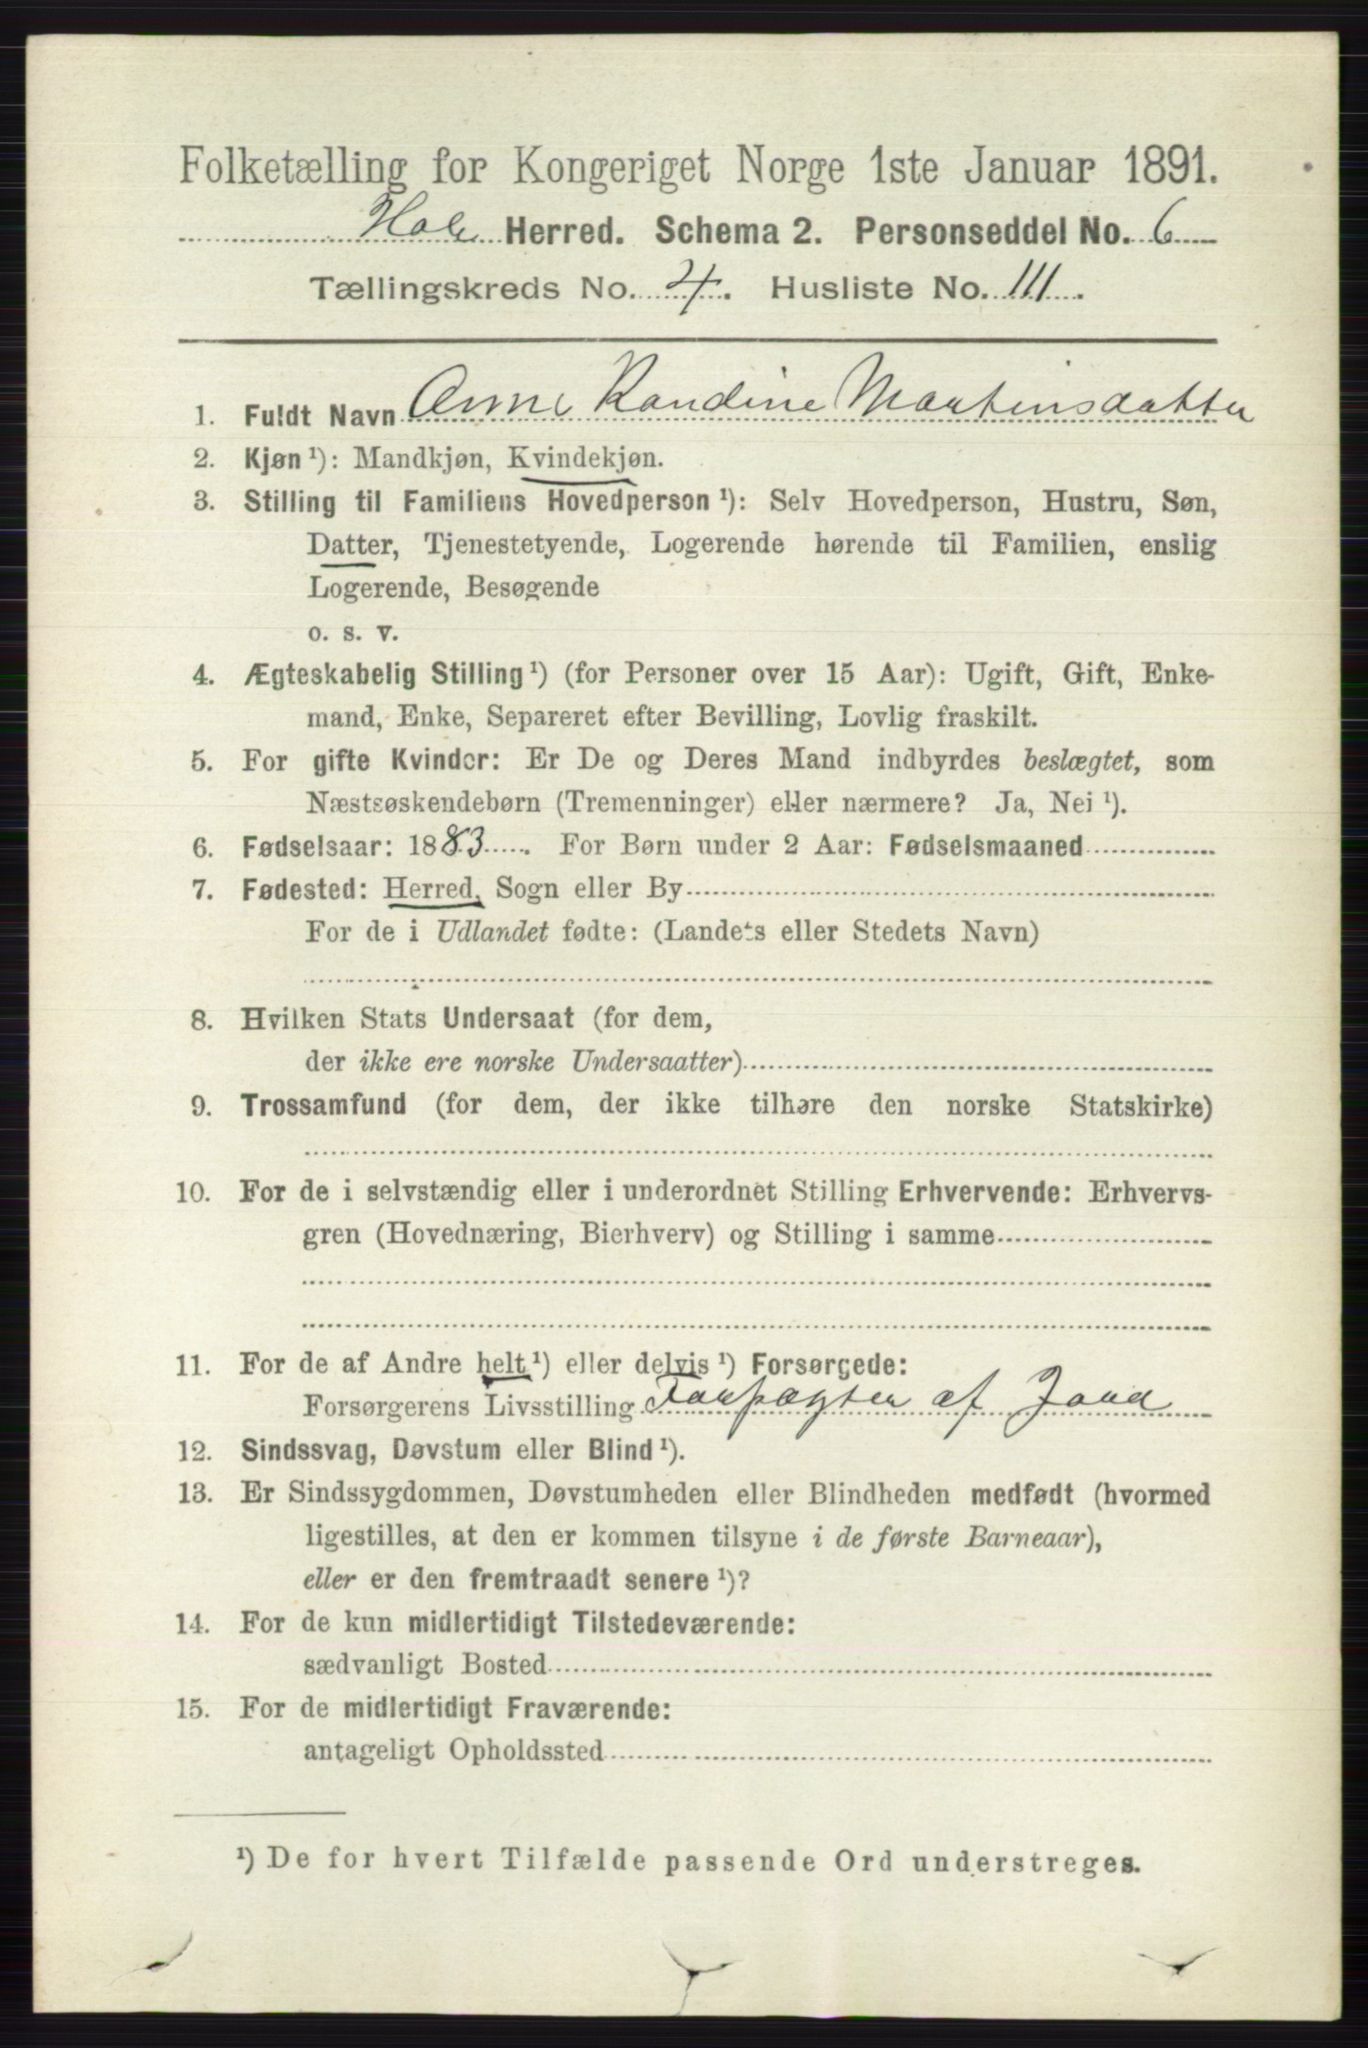 Folketælling for Kongeriget Norge 1ste Januar 1891.
Hole Herred. Schema 2. Personseddel No. 6
Tællingskreds No. 4. Husliste No. 111.
1. Fuldt Navn Anne Randine Martinsdatter
2. Kjøn ¹): Mandkjøn, Kvindekjøn.
3. Stilling til Familiens Hovedperson ¹): Selv Hovedperson, Hustru, Søn,
Datter, Tjenestetyende, Logerende hørende til Familien, enslig
Logerende, Besøgende
o. s. v.
4. Ægteskabelig Stilling ¹) (for Personer over 15 Aar): Ugift, Gift, Enke-
mand, Enke, Separeret efter Bevilling, Lovlig fraskilt.
5. For gifte Kvinder: Er De og Deres Mand indbyrdes beslægtet, som
Næstsøskendebørn (Tremenninger) eller nærmere? Ja, Nei ¹).
6. Fødselsaar: 1883. For Børn under 2 Aar: Fødselsmaaned
7. Fødested: Herred, Sogn eller By
For de i Udlandet fødte: (Landets eller Stedets Navn)
8. Hvilken Stats Undersaat (for dem,
der ikke ere norske Undersaatter)
9. Trossamfund (for dem, der ikke tilhøre den norske Statskirke)
10. For de i selvstændig eller i underordnet Stilling Erhvervende: Erhvervs-
gren (Hovednæring, Bierhverv) og Stilling i samme
11. For de af Andre helt ¹) eller delvis ¹) Forsørgede:
Forsørgerens Livsstilling Forpagter af Jord
12. Sindssvag, Døvstum eller Blind ¹).
13. Er Sindssygdommen, Døvstumheden eller Blindheden medfødt (hvormed
ligestilles, at den er kommen tilsyne i de første Barneaar),
eller er den fremtraadt senere ¹)?
14. For de kun midlertidigt Tilstedeværende:
sædvanligt Bosted
15. For de midlertidigt Fraværende:
antageligt Opholdssted
¹) De for hvert Tilfælde passende Ord understreges.